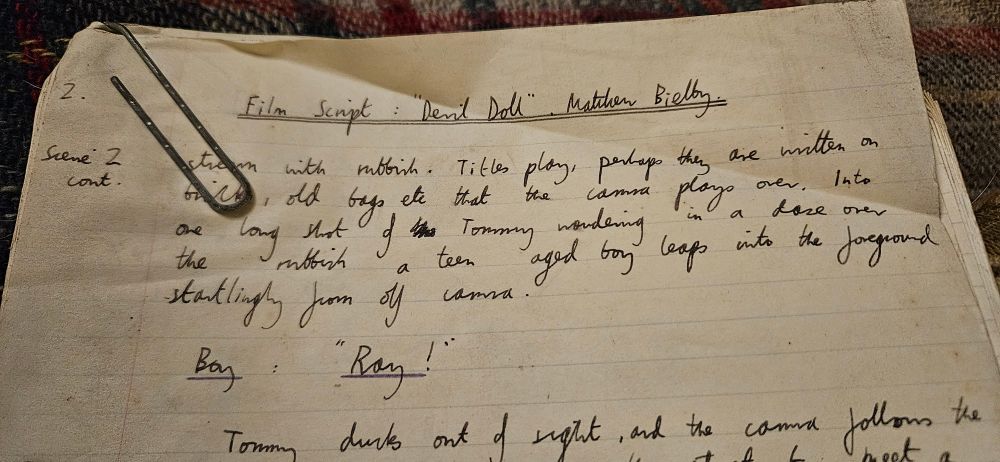 2.
Film Script : "Devil Doll". Matthew Bielby.
Scene 2
cont.
strewn with rubbish. Titles play, perhaps they are written on
bricks, old bags etc that the camra plays over. Into
one long shot of Tommy wandering in a daze over
the rubbish a teen aged boy leaps into the foreground
startlingly from off camra.
Boy : "Ray!"
Tommy ducks out of sight, and the camra follows the
meet a